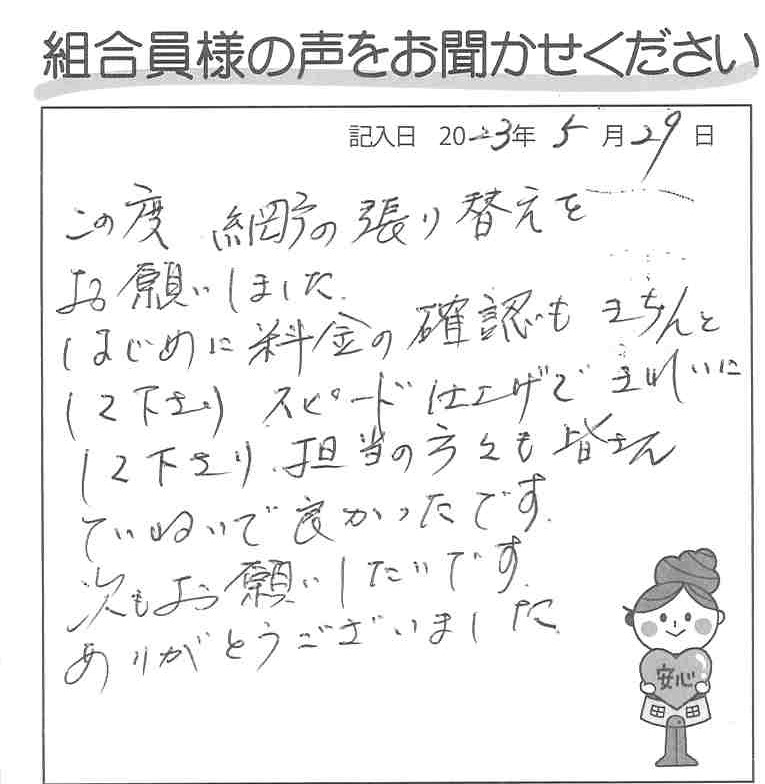 組合員様の声をお聞かせください
記入日 2023年 5月29日
この度 網戸の張り替えを
お願いしました。
はじめに料金の確認も きちんと
して下さり スピード仕上げで きれいに
して下さり、担当の方々も皆さん
ていねいで良かったです。
次もお願いしたいです。
ありがとうございました
安心